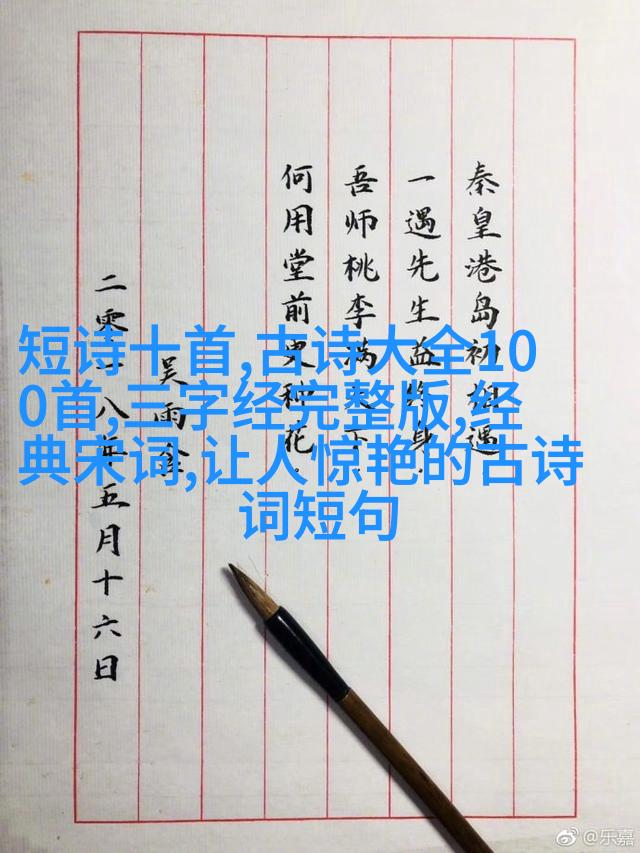 秦皇港岛初相遇
一遇先生益终身
吾师桃李满天下
何用堂前更种花
吴雨
二零一八年五月十六日
短诗十首,古诗大全10
0首,三字经完整版,经
典宋词,让人惊艳的古诗
词短句
@乐嘉